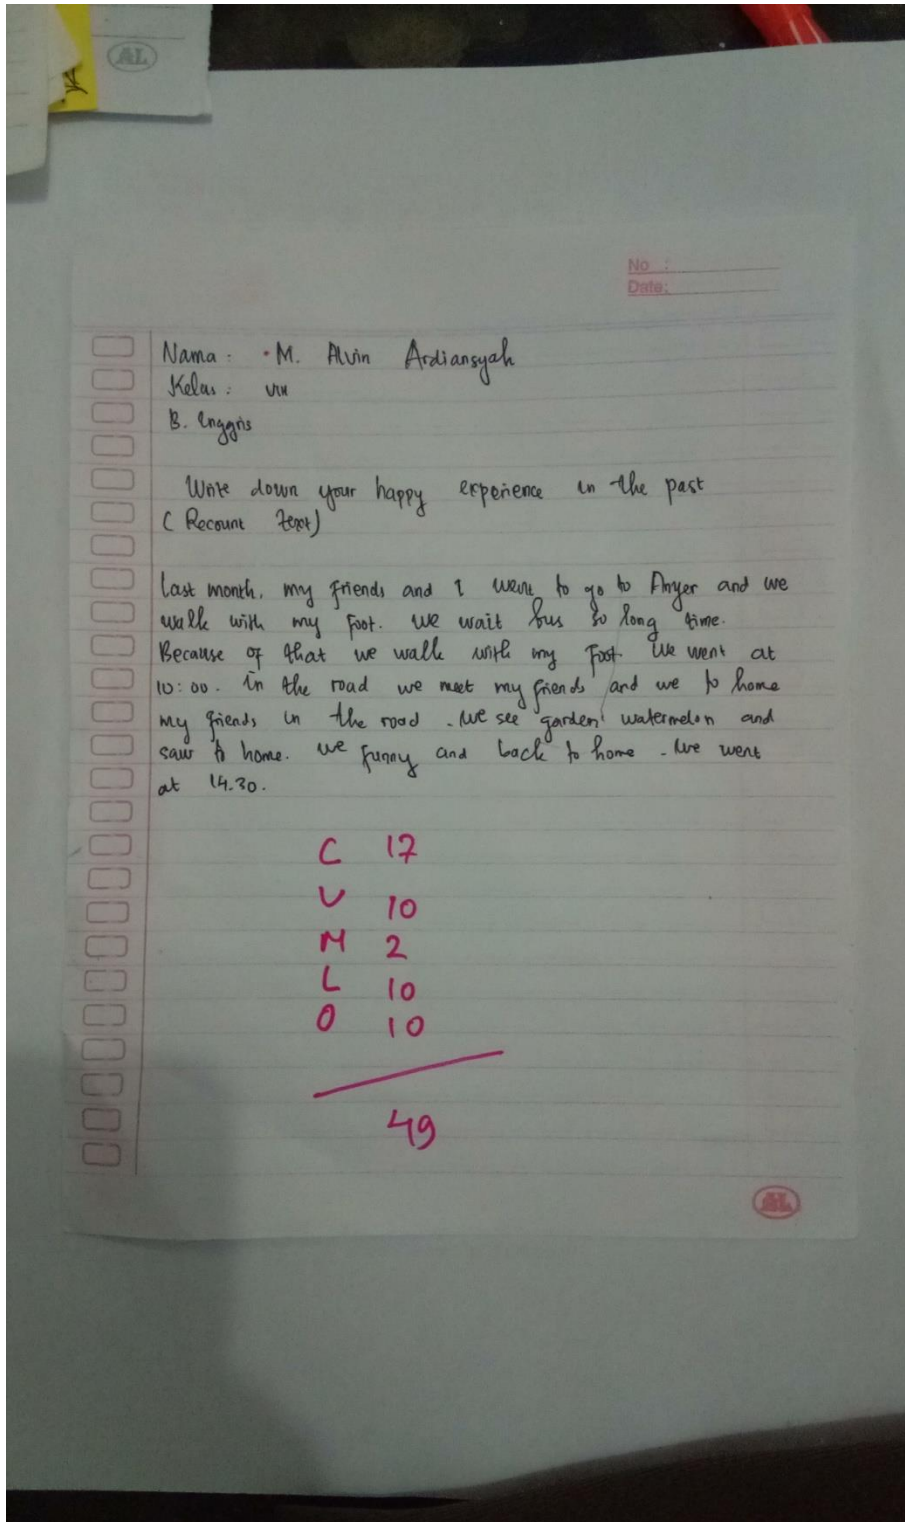 AL
No :
Date:
Nama : M. Alvin Ardiansyah
Kelas : VIII
B. Inggris
Write down your happy experience in the past
( Recount Text)
Last month, my friends and I went to go to Anyer and we
walk with my foot. we wait bus so long time.
Because of that we walk with my foot. We went at
10:00. In the road we meet my friends and we to home
my friends in the road. We see garden watermelon and
saw to home. we funny and back to home. We went
at 14.30.
C 17
V 10
M 2
L 10
O 10
49
AL